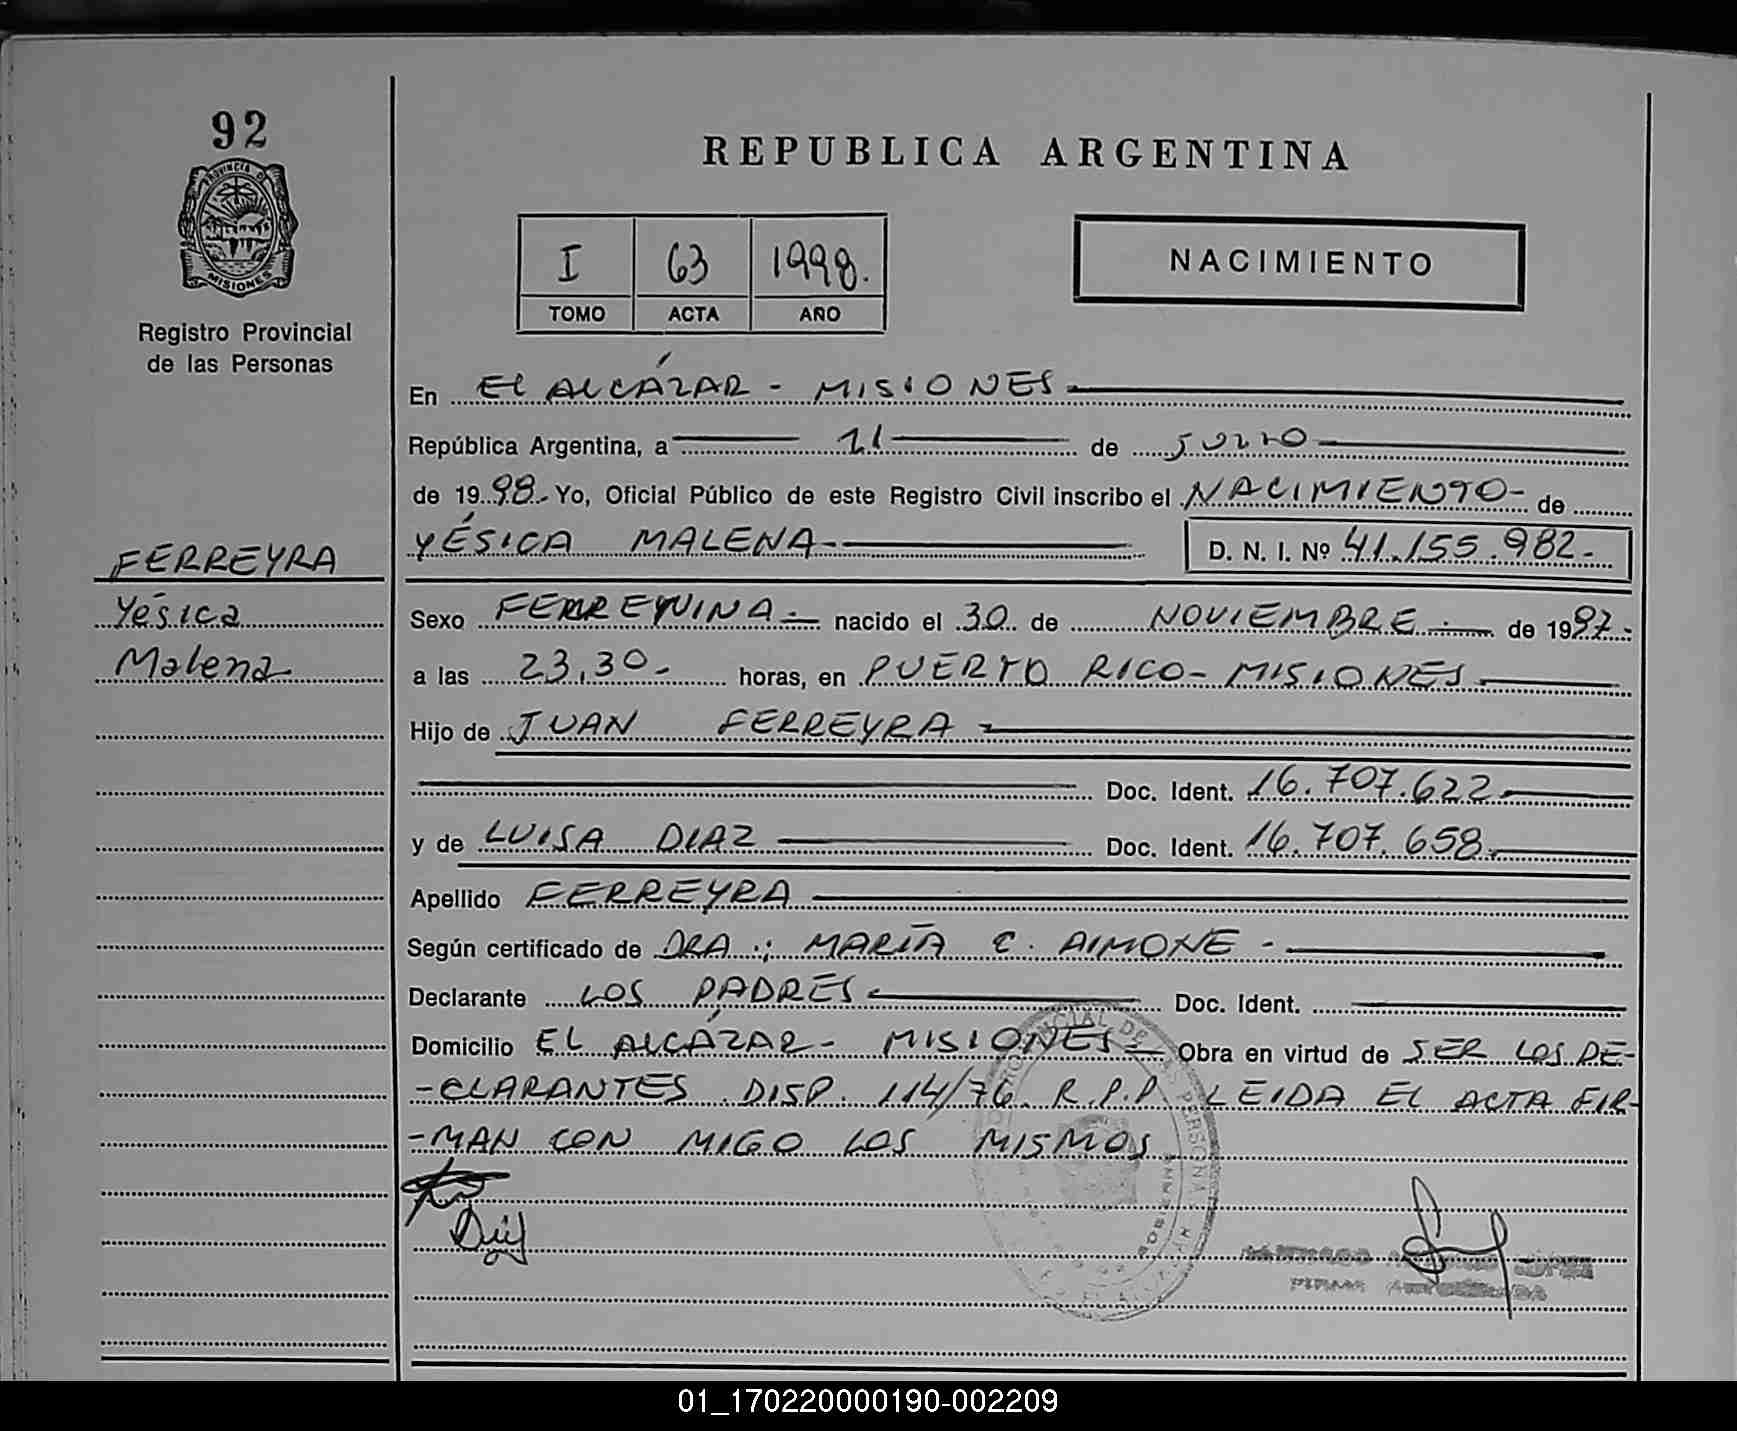 92
PROVINCIA DE
MISIONES
Registro Provincial
de las Personas
REPUBLICA ARGENTINA
I 63 1998.
TOMO ACTA AÑO
NACIMIENTO
En EL ALCÁZAR - MISIONES
República Argentina, a de
de 1998.- Yo, Oficial Público de este Registro Civil inscribo el NACIMIENTO - de
FERREYRA
Yésica
Malena
YÉSICA MALENA.- D. N. I. Nº 41.155.982.-
Sexo nacido el 30 de NOVIEMBRE.- de 1997.-
a las 23,30.- horas, en PUERTO RICO - MISIONES
Hijo de JUAN FERREYRA
Doc. Ident. 16.707.622
y de LUISA DIAZ Doc. Ident. 16.707.658
Apellido FERREYRA
Según certificado de DRA.: MARÍA C. AIMONE -
Declarante LOS PADRES Doc. Ident.
Domicilio EL ALCÁZAR - MISIONES - Obra en virtud de SER LOS DE-
-CLARANTES DISP. 114/76 R.P.P LEIDA EL ACTA FIR-
-MAN CON MIGO LOS MISMOS
01_170220000190-002209